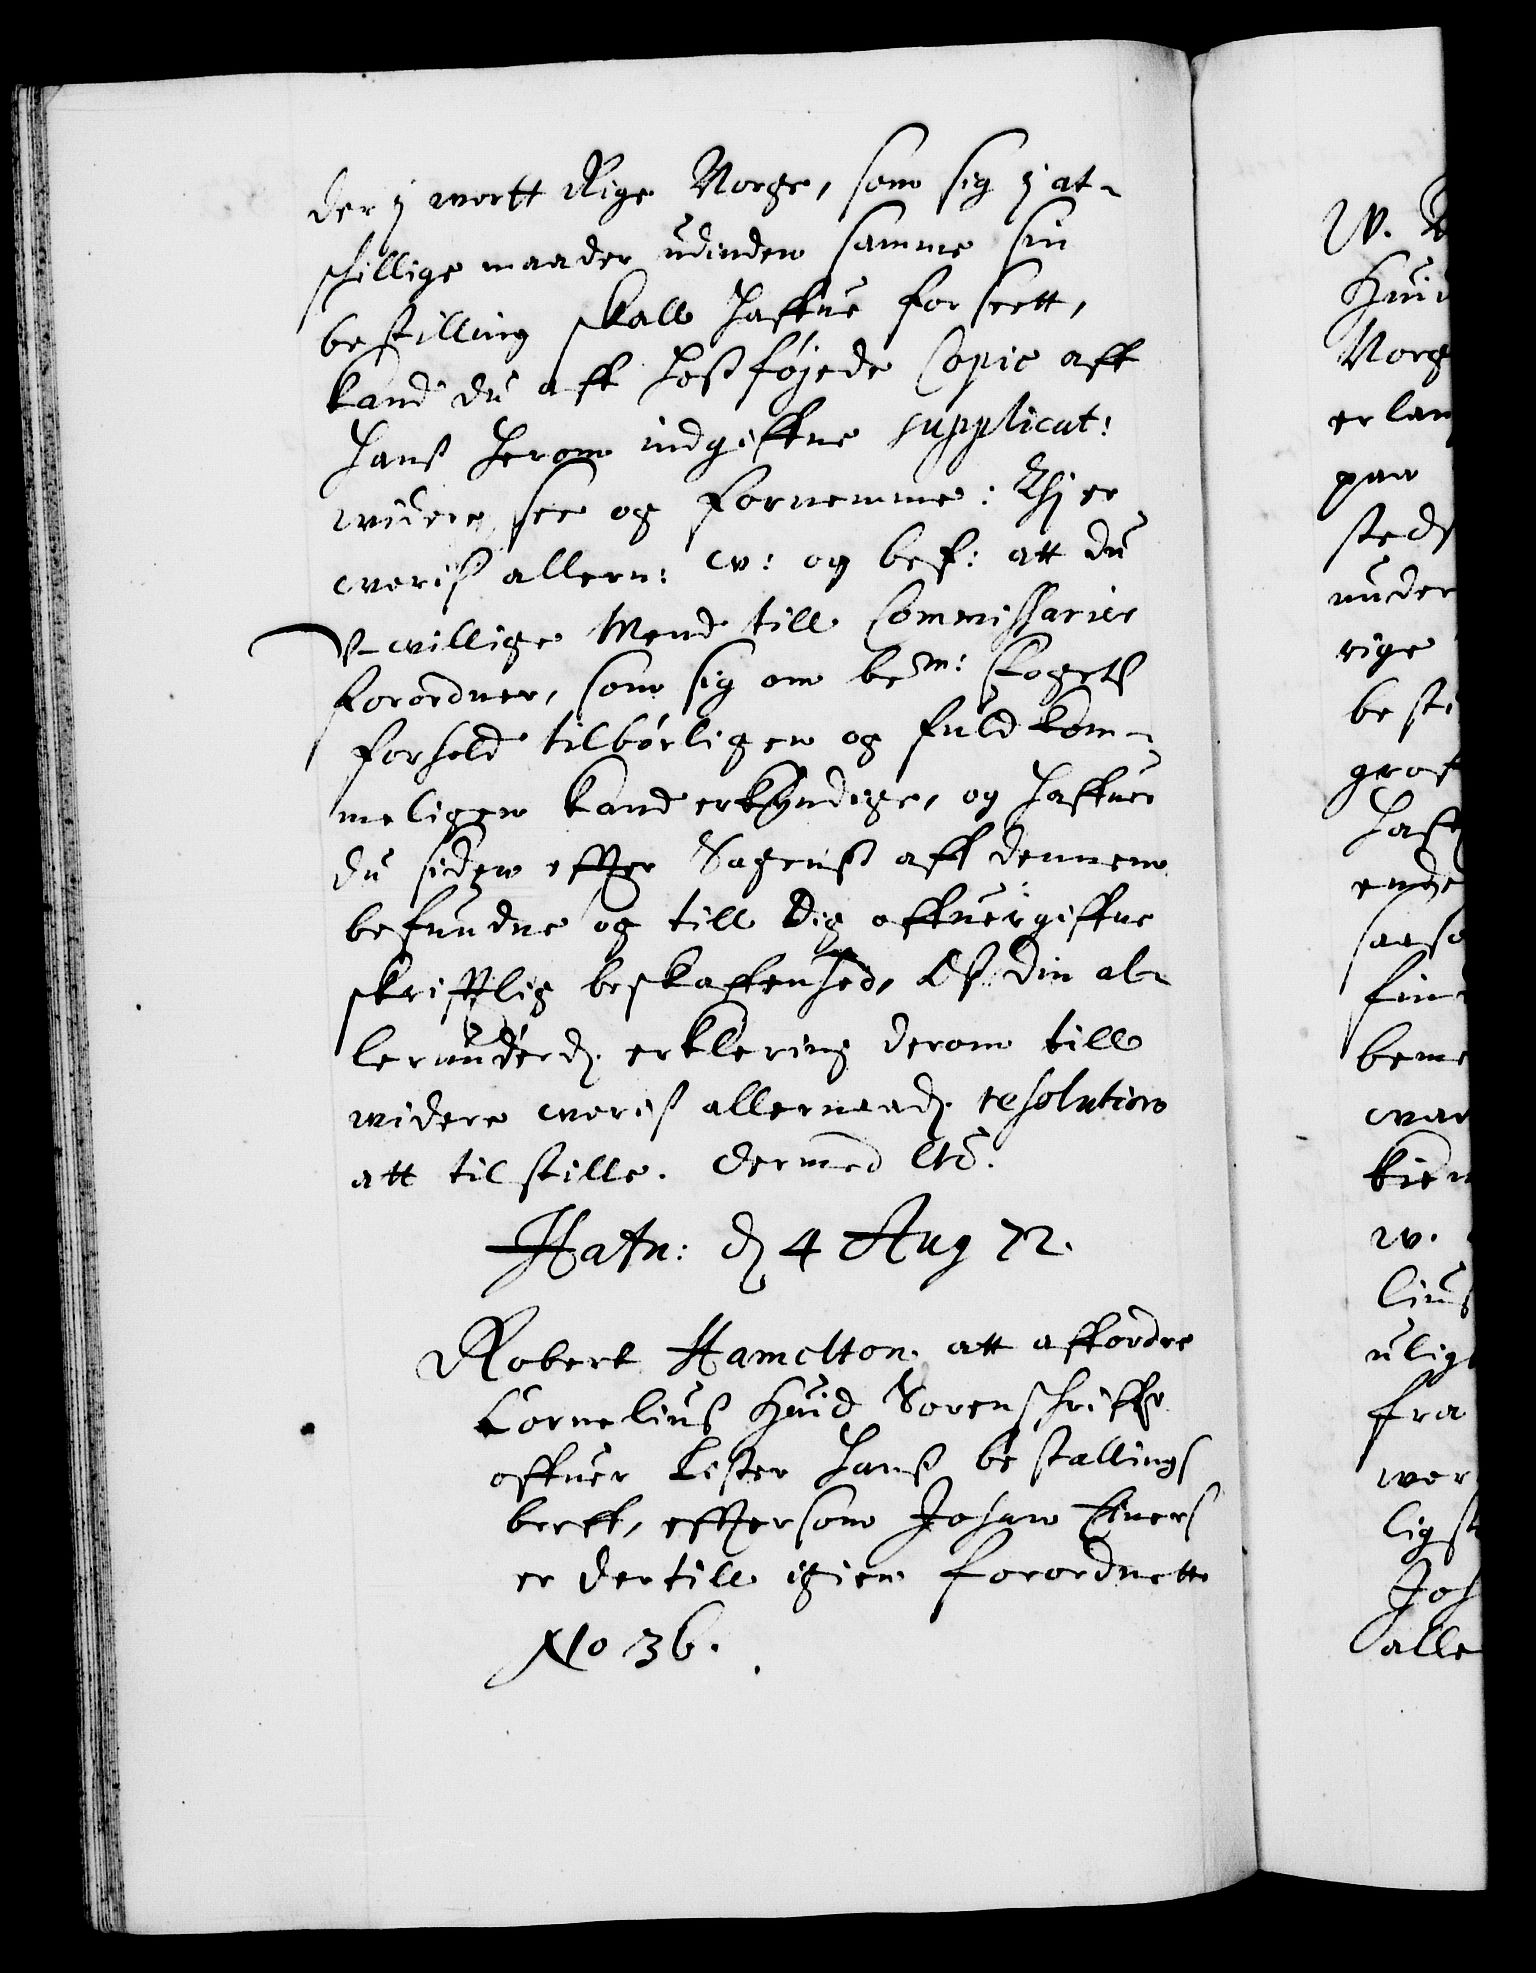 der j wortt Rige Norge, som sig j at-
skillige maader udinden samme sin
bestilling skall haffue forseett,
kand du aff hoßføjede Copie aff
hanß herom indgiffne supplicat:
widere see og fornemme: Thj er
woriß allern: w: og bef: att du
U-willige Mend till Commissarier
forordner, som sig om bem: fogets
forhold tilbörligen og fuldkom-
meligen kand erkyndige, og haffuer
du siden effter Sagenß aff dennem
befundne og till dig offuergiffne
skrifftlig beskaffenhed, Oß din al-
lerunderd. erklering derom till
widere woriß allernaad. resolution
att tilstille. Dermed etc.
Hafn: d 4 Aug 72.
Robert Hamelton att affordre
Corneliuß Huid Sorenschriffr
offuer Lister hanß bestallings
breff, efftersom Johan Evers
er dertill igien forordnett
No 36.
W.
Hui
Norg
erlan
paa
steds
under
rige
besti
graf
haf
ende
saaso
fin
beme
war
kien
w.
liuß
ulig
fra
wor
ligst
Joh
alle